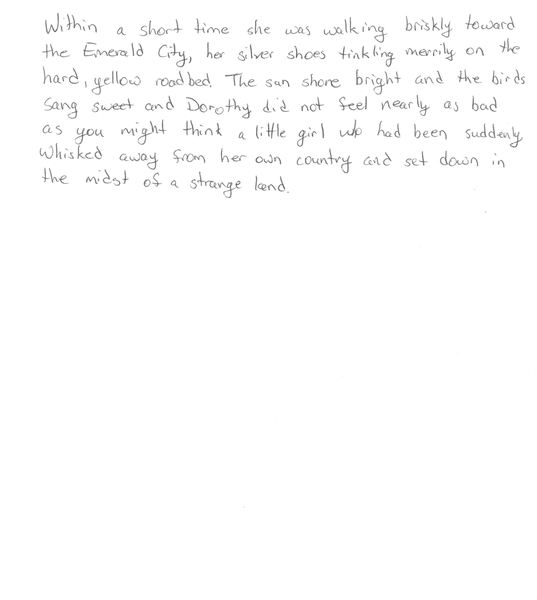 Within a short time she was walking briskly toward
the Emerald City, her silver shoes tinkling merrily on the
hard, yellow roadbed. The sun shone bright and the birds
sang sweet and Dorothy did not feel nearly as bad
as you might think a little girl who had been suddenly
whisked away from her own country and set down in
the midst of a strange land.